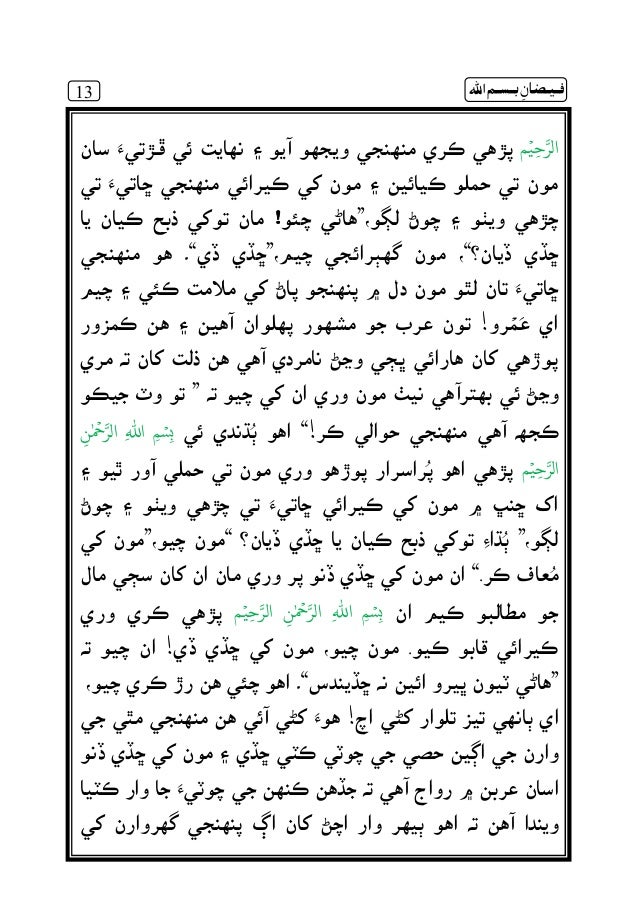 13
فيضانِ بسم الله
الرَّحِيْم پڙهي ڪري منهنجي ويجهو آيو ۽ نهايت ئي ڦڙتيءَ سان
مون تي حملو ڪيائين ۽ مون کي ڪيرائي منهنجي ڇاتيءَ تي
چڙهي ويٺو ۽ چوڻ لڳو،”هاڻي چئو! مان توکي ذبح ڪيان يا
ڇڏي ڏيان؟“، مون گهٻرائجي چيم،”ڇڏي ڏي“. هو منهنجي
ڇاتيءَ تان لٿو مون دل ۾ پنهنجو پاڻ کي ملامت ڪئي ۽ چيم
اي عَمْرو! تون عرب جو مشهور پهلوان آهين ۽ هن ڪمزور
پوڙهي کان هارائي ڀڄي وڃڻ نامردي آهي هن ذلت کان ته مري
وڃڻ ئي بهترآهي نيٺ مون وري ان کي چيو ته ” تو وٽ جيڪو
ڪجهه آهي منهنجي حوالي ڪر!“ اهو ٻُڌندي ئي بِسْمِ اللهِ الرَّحْمٰنِ
الرَّحِيْم پڙهي اهو پُراسرار پوڙهو وري مون تي حملي آور ٿيو ۽
اک ڇنڀ ۾ مون کي ڪيرائي ڇاتيءَ تي چڙهي ويٺو ۽ چوڻ
لڳو،” ٻُڌاءِ توکي ذبح ڪيان يا ڇڏي ڏيان؟ “مون چيو،”مون کي
مُعاف ڪر.“ ان مون کي ڇڏي ڏنو پر وري مان ان کان سڄي مال
جو مطالبو ڪيم ان بِسْمِ اللهِ الرَّحْمٰنِ الرَّحِيْم پڙهي ڪري وري
ڪيرائي قابو ڪيو. مون چيو، مون کي ڇڏي ڏي! ان چيو ته
”هاڻي ٽيون ڀيرو ائين نه ڇڏيندس“. اهو چئي هن رڙ ڪري چيو،
اي ٻانهي تيز تلوار کڻي اچ! هوءَ کڻي آئي هن منهنجي مٿي جي
وارن جي اڳين حصي جي چوٽي ڪٽي ڇڏي ۽ مون کي ڇڏي ڏنو
اسان عربن ۾ رواج آهي ته جڏهن ڪنهن جي چوٽيءَ جا وار ڪٽيا
ويندا آهن ته اهو ٻيهر وار اچڻ کان اڳ پنهنجي گهروارن کي